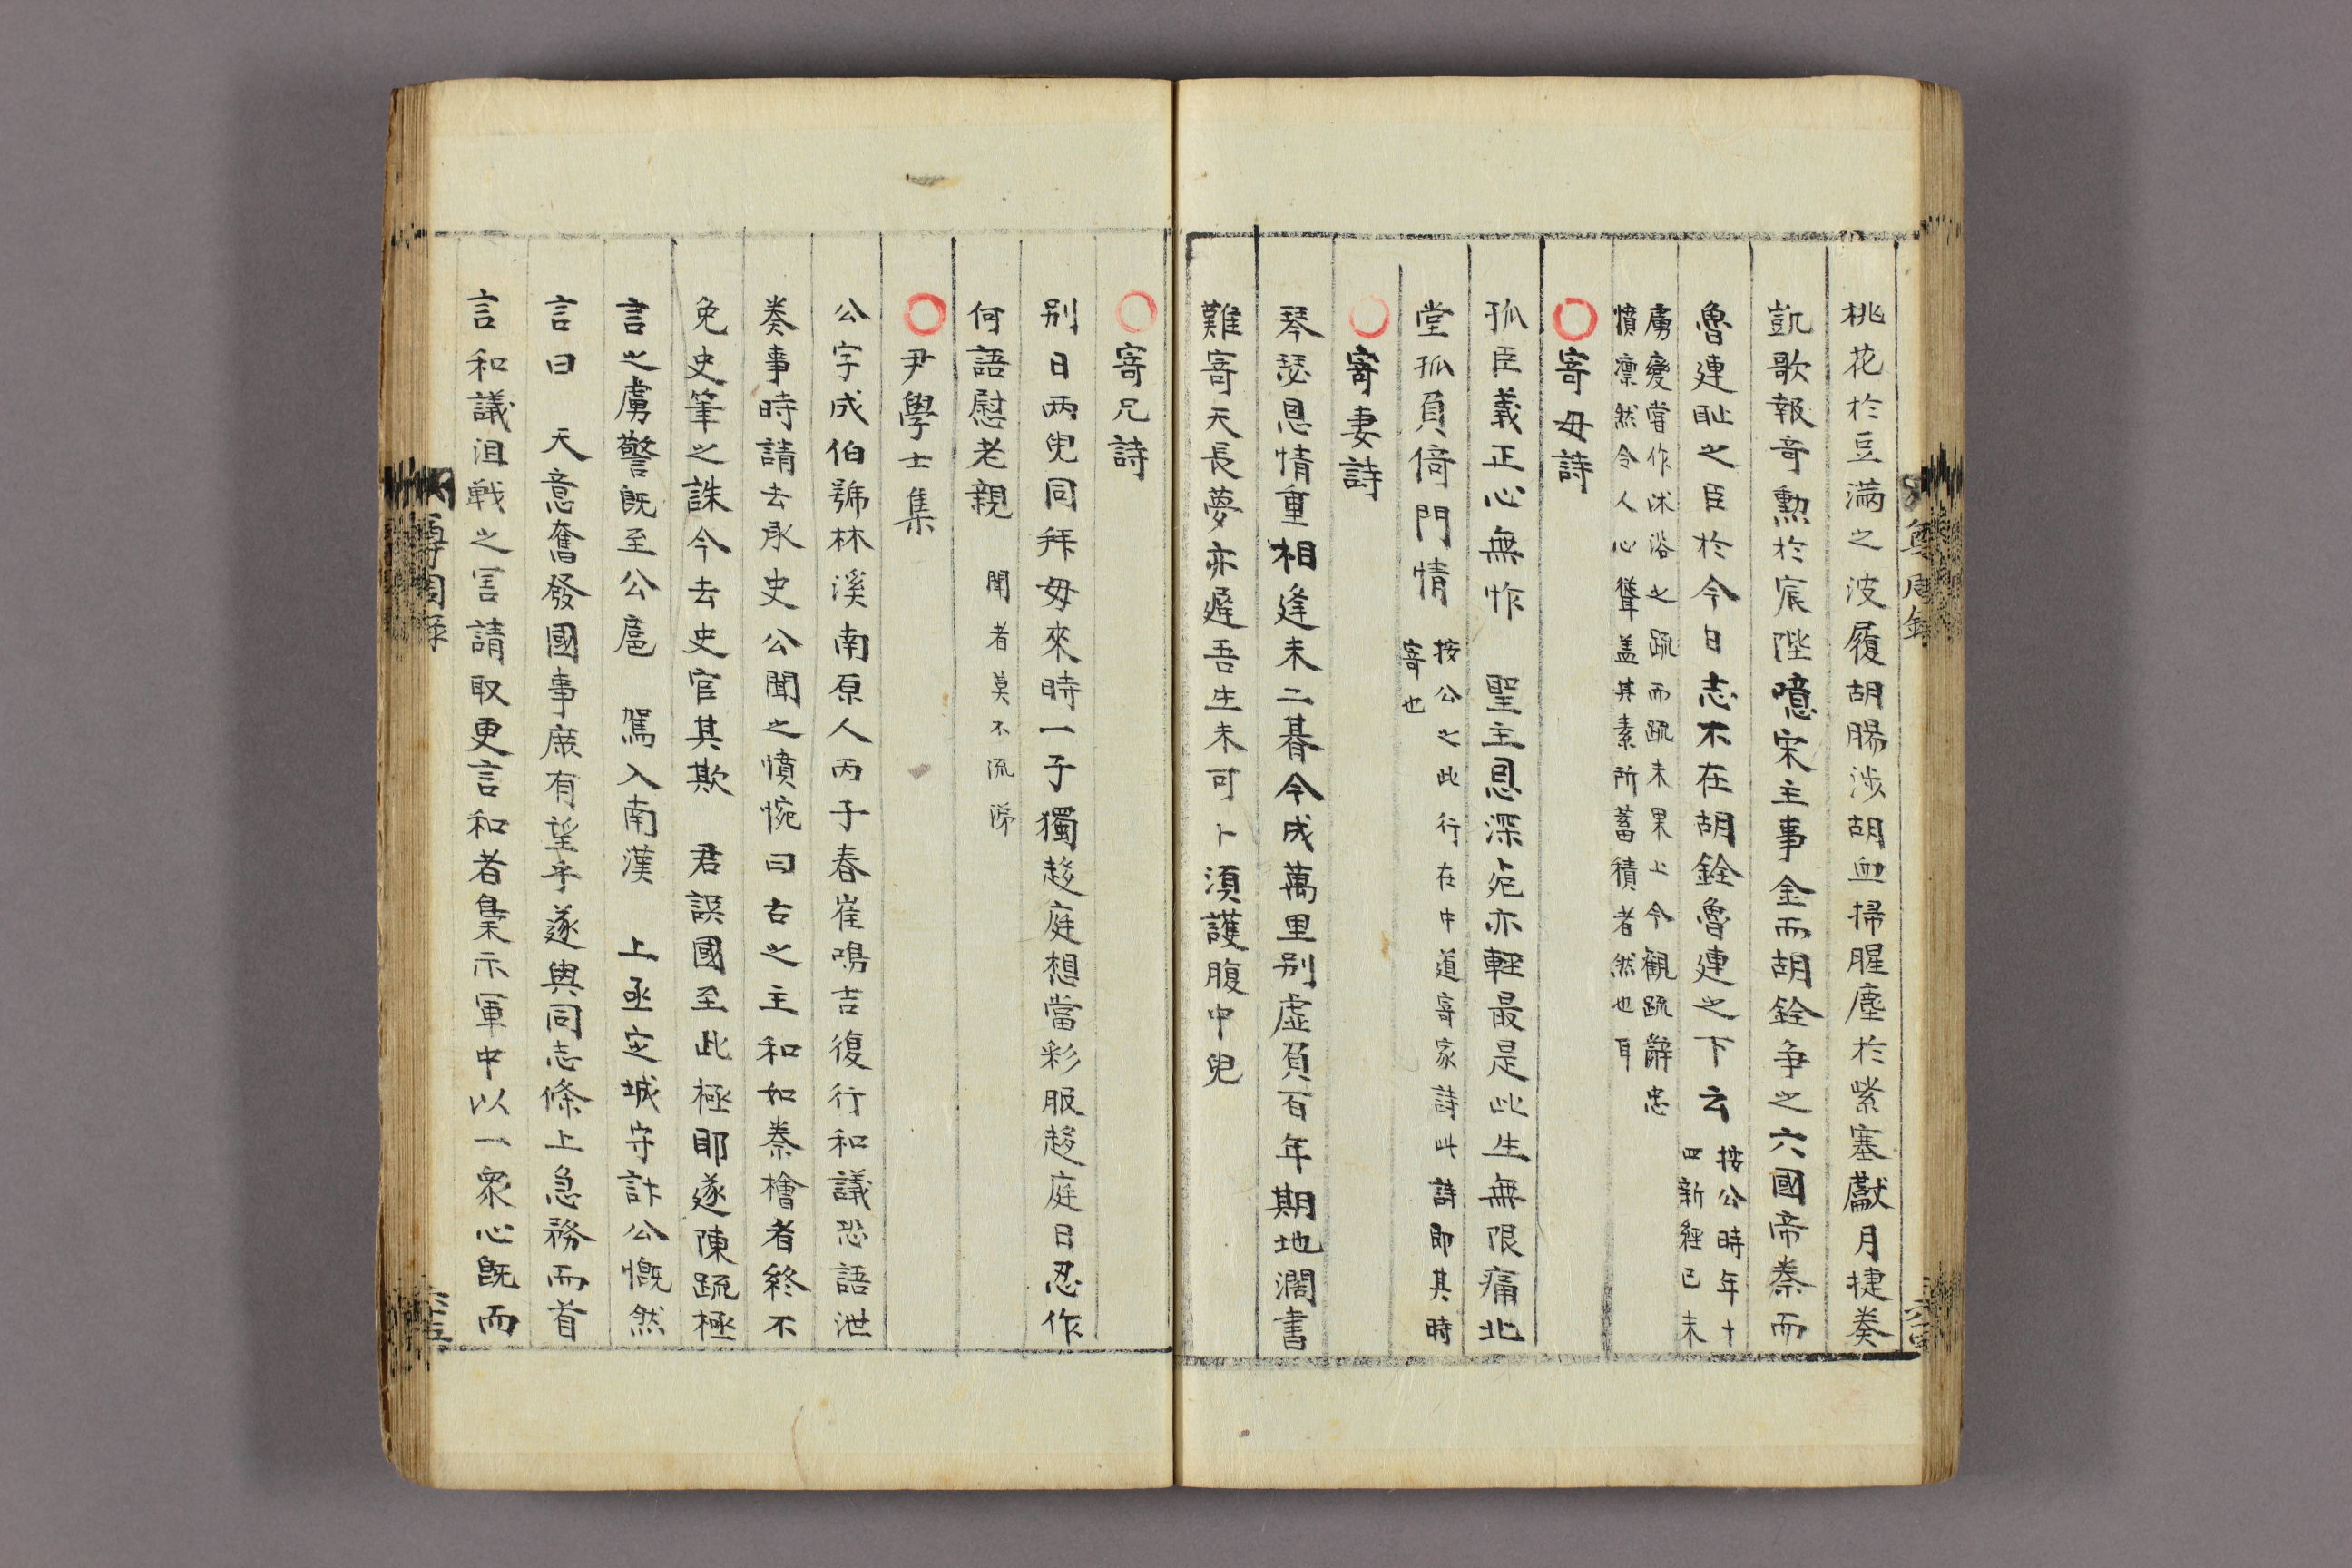 桃花於豆滿之波履胡腸涉胡血掃腥塵於紫塞獻月捷奏
凱歌報奇勳於宸陛噫宋主事金而胡銓爭之六國帝秦而
魯連恥之臣於今日志不在胡銓魯連之下云
按公時年十
四新經己未
虜變嘗作沐浴之疏而疏未果上今觀疏辭忠
憤凛然令人心聳盖其素所蓄積者然也耳
○寄母詩
孤臣義正心無怍 聖主恩深死亦輕最是此生無限痛北
堂孤負倚門情
按公之此行在中道寄家詩此詩即其時
寄也
○寄妻詩
琴瑟恩情重相逢未二朞今成萬里別虛負百年期地濶書
難寄天長夢亦遲吾生未可卜須護腹中兒
○寄兄詩
別日兩兒同拜母來時一子獨趍庭想當彩服趍庭日忍作
何語慰老親 聞者莫不流涕
○尹學士集
公字成伯號林溪南原人丙子春崔鳴吉復行和議恐語泄
奏事時請去承史公聞之憤惋曰古之主和如秦檜者終不
免史筆之誅今去史官其欺 君誤國至此極耶遂陳疏極
言之虜警旣至公扈 駕入南漢 上亟定城守計公慨然
言曰 天意奮發國事庶有望乎遂與同志條上急務而首
言和議沮戰之害請取更言和者梟示軍中以一衆心旣而
尊周錄
六十三
尊周錄
六十四